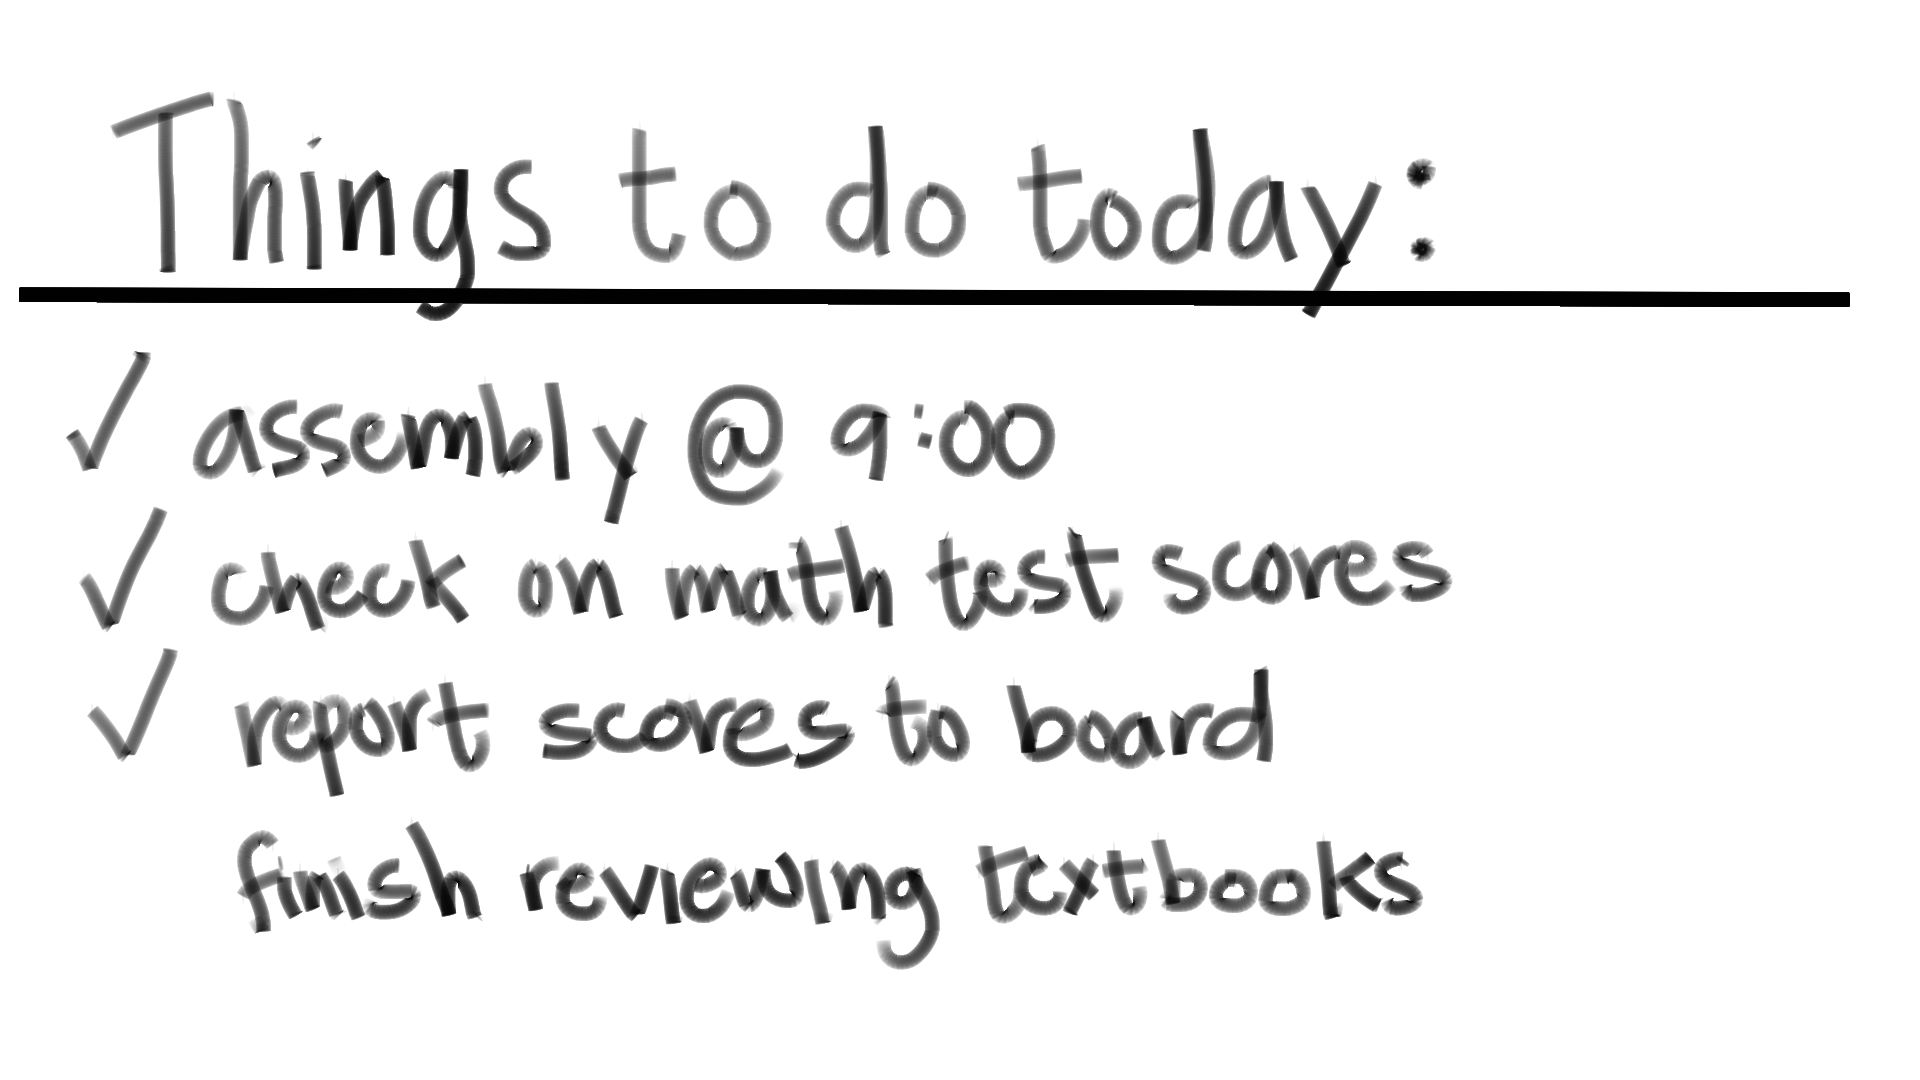 Things to do today:
✓ assembly @ 9:00
✓ check on math test scores
✓ report scores to board
finish reviewing textbooks